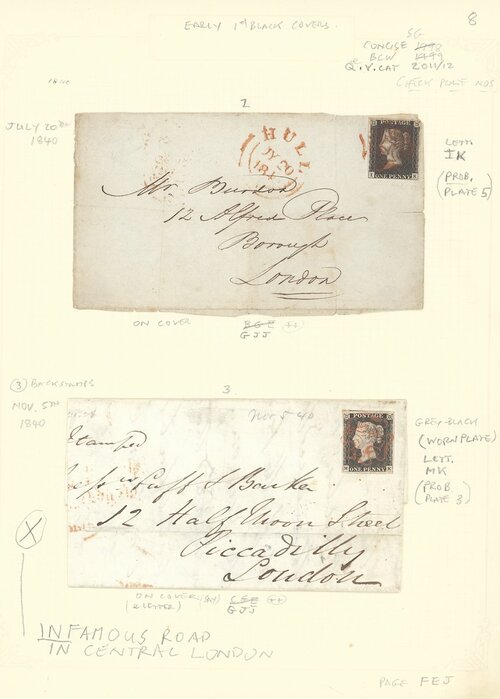 EARLY 1d BLACK COVERS.
8
SG
CONCISE 1998
BCW 1999
Q.V. CAT 2011/12
CHECK PLATE NOS
2
JULY 20th
1840
HULL
JY 20
184
POSTAGE
I K
ONE PENNY
LETT.
IK
(PROB.
PLATE 5)
Mr Burdon
12 Alfred Place
Borough
London
ON COVER
GJJ
3
(3) BACKSTAMPS
NOV. 5th
1840
Nov 5 40
Stamped
POSTAGE
M K
ONE PENNY
GREY-BLACK
(WORN PLATE)
LETT.
MK
(PROB
PLATE 3)
Cuff & Barker
12 Half Moon Street
Piccadilly
London
X
ON COVER
(& LETTER)
GJJ
INFAMOUS ROAD
IN CENTRAL LONDON
PAGE FEJ